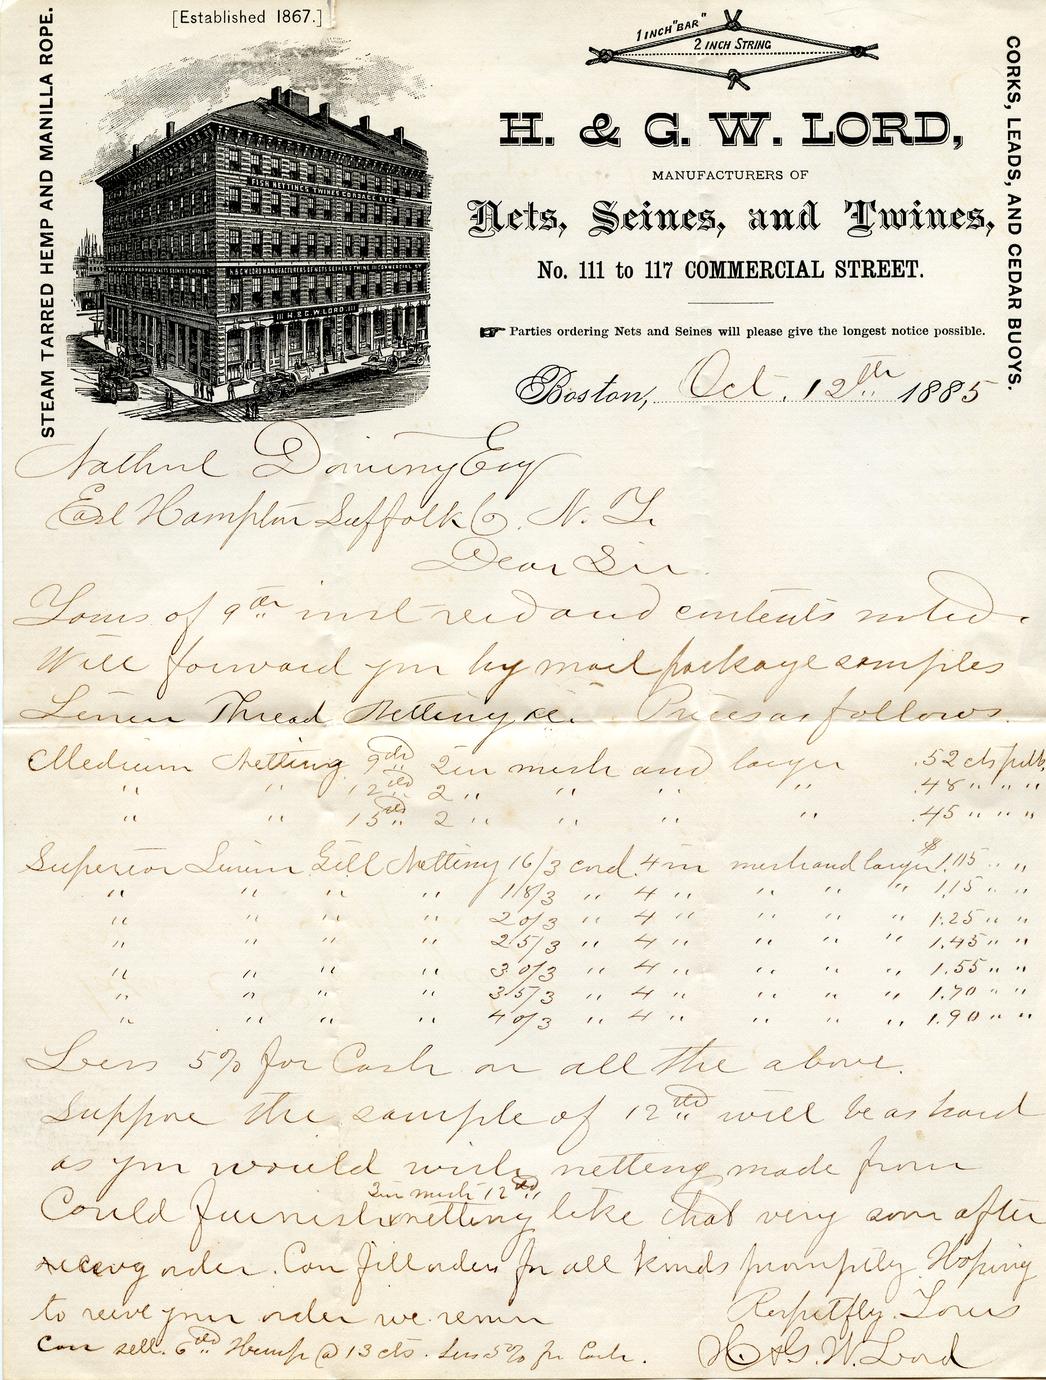 [Established 1867.]
STEAM TARRED HEMP AND MANILLA ROPE.
FISH NETTINGS TWINES CORDAGE &c.
H. & G. W. LORD
1 INCH "BAR"
2 INCH STRING
H. & G. W. LORD,
MANUFACTURERS OF
Nets, Seines, and Twines,
No. 111 to 117 COMMERCIAL STREET.
Parties ordering Nets and Seines will please give the longest notice possible.
CORKS, LEADS, AND CEDAR BUOYS.
Boston, Oct. 12th 1885
Nathnl Dominy Esq
East Hampton Suffolk Co. N. Y.
Dear Sir.
Yours of 9th inst recd and contents noted.
Will forward you by mail package samples
Linen Thread Netting &c. Prices as follows.
Medium Netting 9thd 2 in mesh and larger .52 cts pr lb.
" " 12thd 2 " " " " .48 " " "
" " 15thd 2 " " " " .45 " " "
Superior Linen Gill Netting 16/3 cord 4 in mesh and larger $ " "
" " " " 18/3 " 4 " " " " 1.15 " "
" " " " 20/3 " 4 " " " " 1.25 " "
" " " " 25/3 " 4 " " " " 1.45 " "
" " " " 30/3 " 4 " " " " 1.55 " "
" " " " 35/3 " 4 " " " " 1.70 " "
" " " " 40/3 " 4 " " " " 1.90 " "
Less 5% for Cash on all the above.
Suppose the sample of 12thd will be as hard
as you would wish netting made from
2 in mesh 12thd
Could furnish x netting like that very soon after
order. Can fill orders for all kinds promptly. Hoping
to receive your order we remain
Respetfly Yours
Can sell 6thd Hemp @ 13 cts. Less 5% for Cash.
H & G. W. Lord